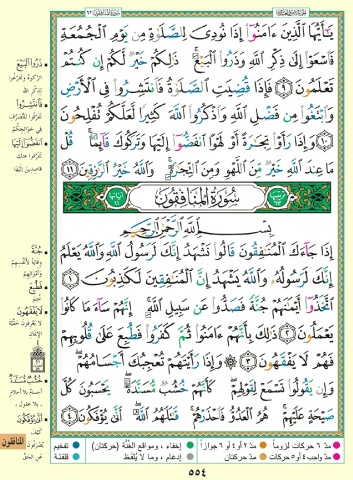 يَٰٓأَيُّهَا ٱلَّذِينَ ءَامَنُوٓا۟ إِذَا نُودِىَ لِلصَّلَوٰةِ مِن يَوْمِ ٱلْجُمُعَةِ
فَٱسْعَوْا۟ إِلَىٰ ذِكْرِ ٱللَّهِ وَذَرُوا۟ ٱلْبَيْعَ ۚ ذَٰلِكُمْ خَيْرٌ لَّكُمْ إِن كُنتُمْ
تَعْلَمُونَ ٩ فَإِذَا قُضِيَتِ ٱلصَّلَوٰةُ فَٱنتَشِرُوا۟ فِى ٱلْأَرْضِ
وَٱبْتَغُوا۟ مِن فَضْلِ ٱللَّهِ وَٱذْكُرُوا۟ ٱللَّهَ كَثِيرًا لَّعَلَّكُمْ تُفْلِحُونَ
١٠ وَإِذَا رَأَوْا۟ تِجَٰرَةً أَوْ لَهْوًا ٱنفَضُّوٓا۟ إِلَيْهَا وَتَرَكُوكَ قَآئِمًا ۚ قُلْ
مَا عِندَ ٱللَّهِ خَيْرٌ مِّنَ ٱللَّهْوِ وَمِنَ ٱلتِّجَٰرَةِ ۚ وَٱللَّهُ خَيْرُ ٱلرَّٰزِقِينَ ١١
سُورَةُ المُنَافِقُونَ
بِسْمِ ٱللَّهِ ٱلرَّحْمَٰنِ ٱلرَّحِيمِ
إِذَا جَآءَكَ ٱلْمُنَٰفِقُونَ قَالُوا۟ نَشْهَدُ إِنَّكَ لَرَسُولُ ٱللَّهِ ۗ وَٱللَّهُ يَعْلَمُ
إِنَّكَ لَرَسُولُهُۥ وَٱللَّهُ يَشْهَدُ إِنَّ ٱلْمُنَٰفِقِينَ لَكَٰذِبُونَ ١
ٱتَّخَذُوٓا۟ أَيْمَٰنَهُمْ جُنَّةً فَصَدُّوا۟ عَن سَبِيلِ ٱللَّهِ ۚ إِنَّهُمْ سَآءَ مَا كَانُوا۟
يَعْمَلُونَ ٢ ذَٰلِكَ بِأَنَّهُمْ ءَامَنُوا۟ ثُمَّ كَفَرُوا۟ فَطُبِعَ عَلَىٰ قُلُوبِهِمْ
فَهُمْ لَا يَفْقَهُونَ ٣ ۞ وَإِذَا رَأَيْتَهُمْ تُعْجِبُكَ أَجْسَامُهُمْ ۖ
وَإِن يَقُولُوا۟ تَسْمَعْ لِقَوْلِهِمْ ۖ كَأَنَّهُمْ خُشُبٌ مُّسَنَّدَةٌ ۖ يَحْسَبُونَ كُلَّ
صَيْحَةٍ عَلَيْهِمْ ۚ هُمُ ٱلْعَدُوُّ فَٱحْذَرْهُمْ ۚ قَٰتَلَهُمُ ٱللَّهُ ۖ أَنَّىٰ يُؤْفَكُونَ ٤
ذَرُوا البَيْعَ
فَانتَشِرُوا
انفَضُّوا إِلَيْهَا
جُنَّةً
وقاية لأنفسهم
وأموالهم
فَطُبِعَ
ختم
لَا يَفْقَهُونَ
خُشُبٌ مُسَنَّدَةٌ
أجسام بلا أحلام
أَنَّى يُؤْفَكُونَ
المنافقون
مدّ ٦ حركات لزوماً
مدّ ٢ أو ٤ أو ٦ جوازاً
إخفاء، ومواقع الغُنَّة (حركتان)
تفخيم
مدّ واجب ٤ أو ٥ حركات
مدّ حركتان
إدغام، وما لا يُلفَظ
قلقلة
٥٥٤